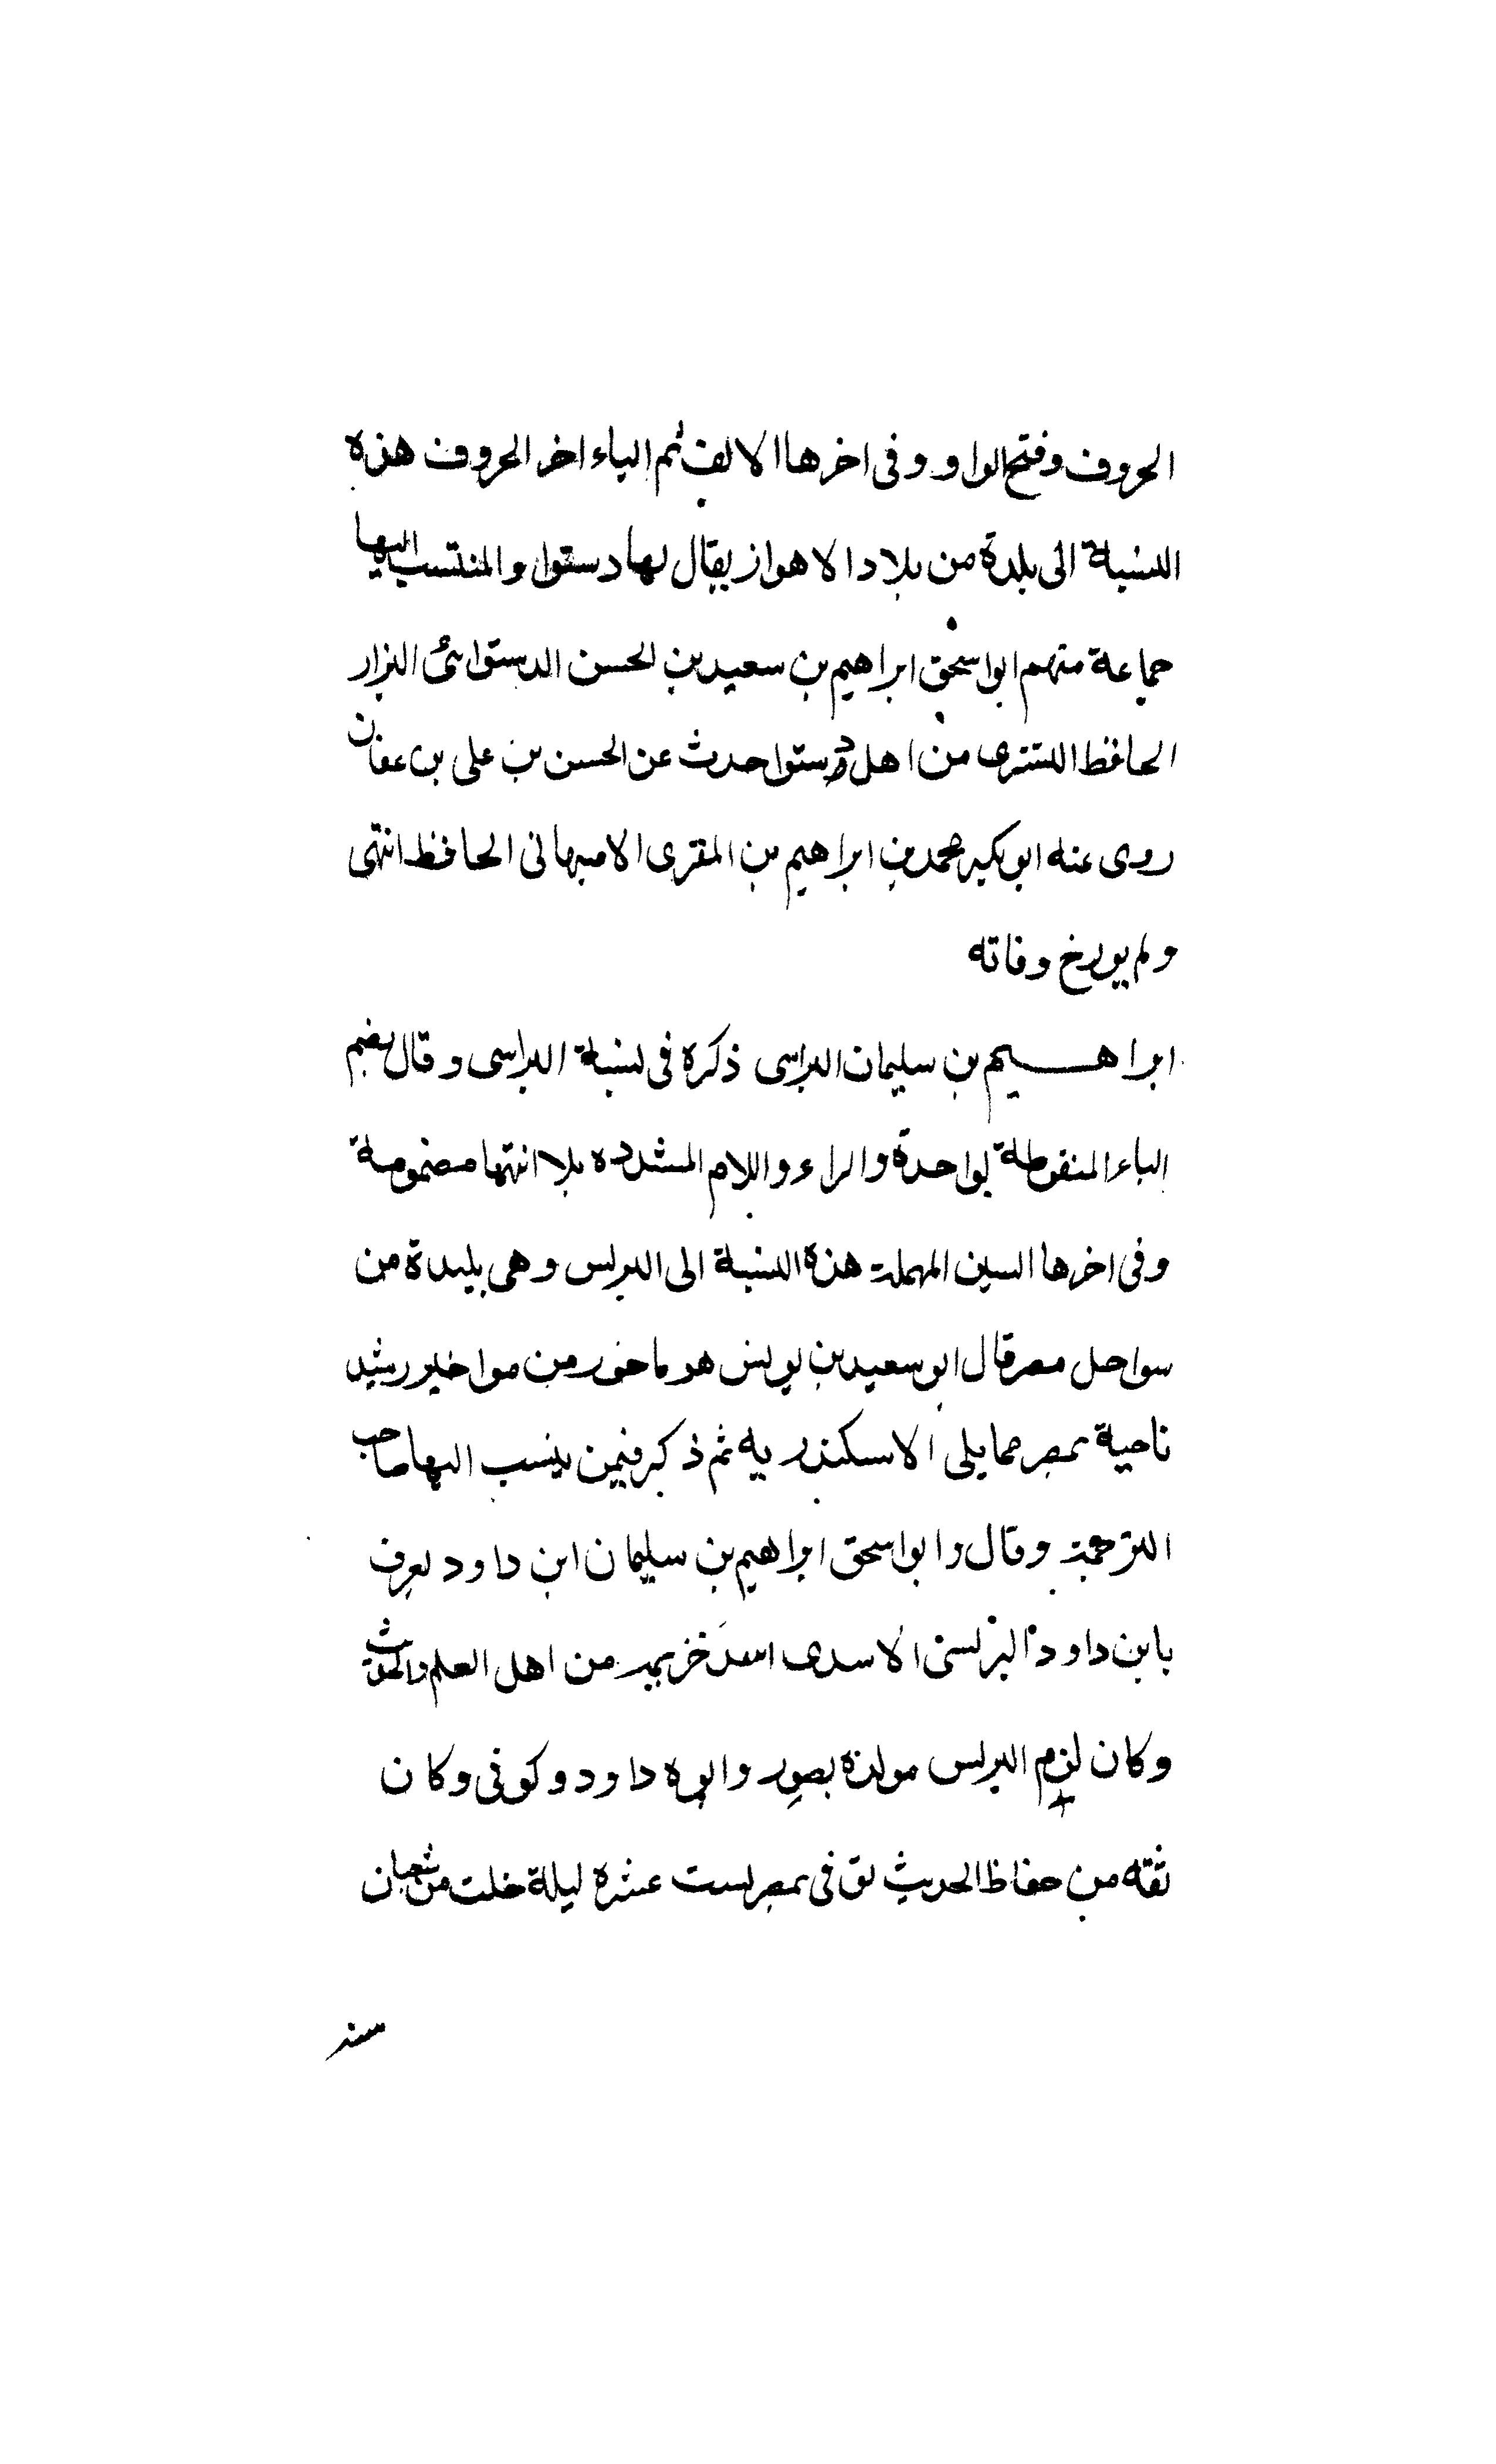 الحروف وفتح الواو وفى اخرها الالف ثم الياء اخر الحروف هذه
النسبة الى بلدة من بلاد الاهواز يقال لها دستوا والمنتسب اليها
جماعة منهم ابواسحق ابراهيم بن سعيد بن الحسن الدستوائى البزار
الحافظ التسترى من اهل دستوا حدث عن الحسن بن على بن عفان
روى عنه ابوبكير محمد بن ابراهيم بن المقرى الاصبهانى الحافظ انتهى
ولم يورخ وفاته
ابراهيم بن سليمان البراسى ذكره فى نسبة البراسى وقال بضم
الباء المنقوطة بواحدة والراء واللام المشدده بلا انتها مضمومة
وفى اخرها السين المهملة هذه النسبة الى البرلس وهى بليدة من
سواحل مصر قال ابو سعيد بن يونس هو ماخور من مواخير رشيد
ناحية بمصر مما يلى الاسكندريه ثم ذكر فيمن ينسب اليها صاحب
الترجمة وقال وابواسحق ابراهيم بن سليمان ابن داود يعرف
بابن داود البرلسى الاسدى اسد خزيمة من اهل العلم والحديث
وكان لزم البرلس مولده بصور وابوه داود وكوفى وكان
ثقه من حفاظ الحديث توفى بمصر لست عشره ليلة خلت من شعبان
سنة